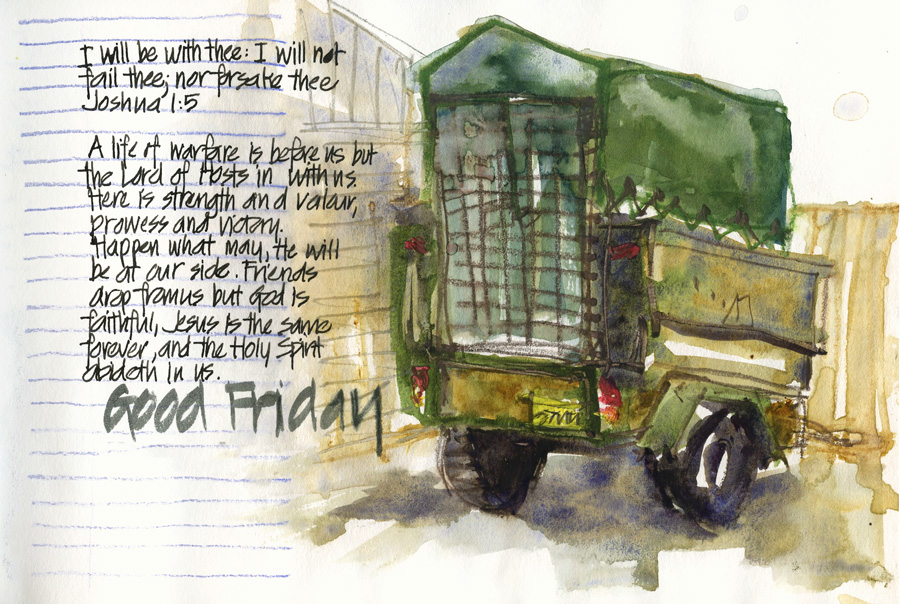 I will be with thee: I will not
fail thee, nor forsake thee
Joshua 1:5
A life of warfare is before us but
the Lord of Hosts in with us.
Here is strength and valour,
prowess and victory.
Happen what may, He will
be at our side. Friends
drop from us but God is
faithful, Jesus is the same
forever, and the Holy Spirit
abideth in us.
Good Friday